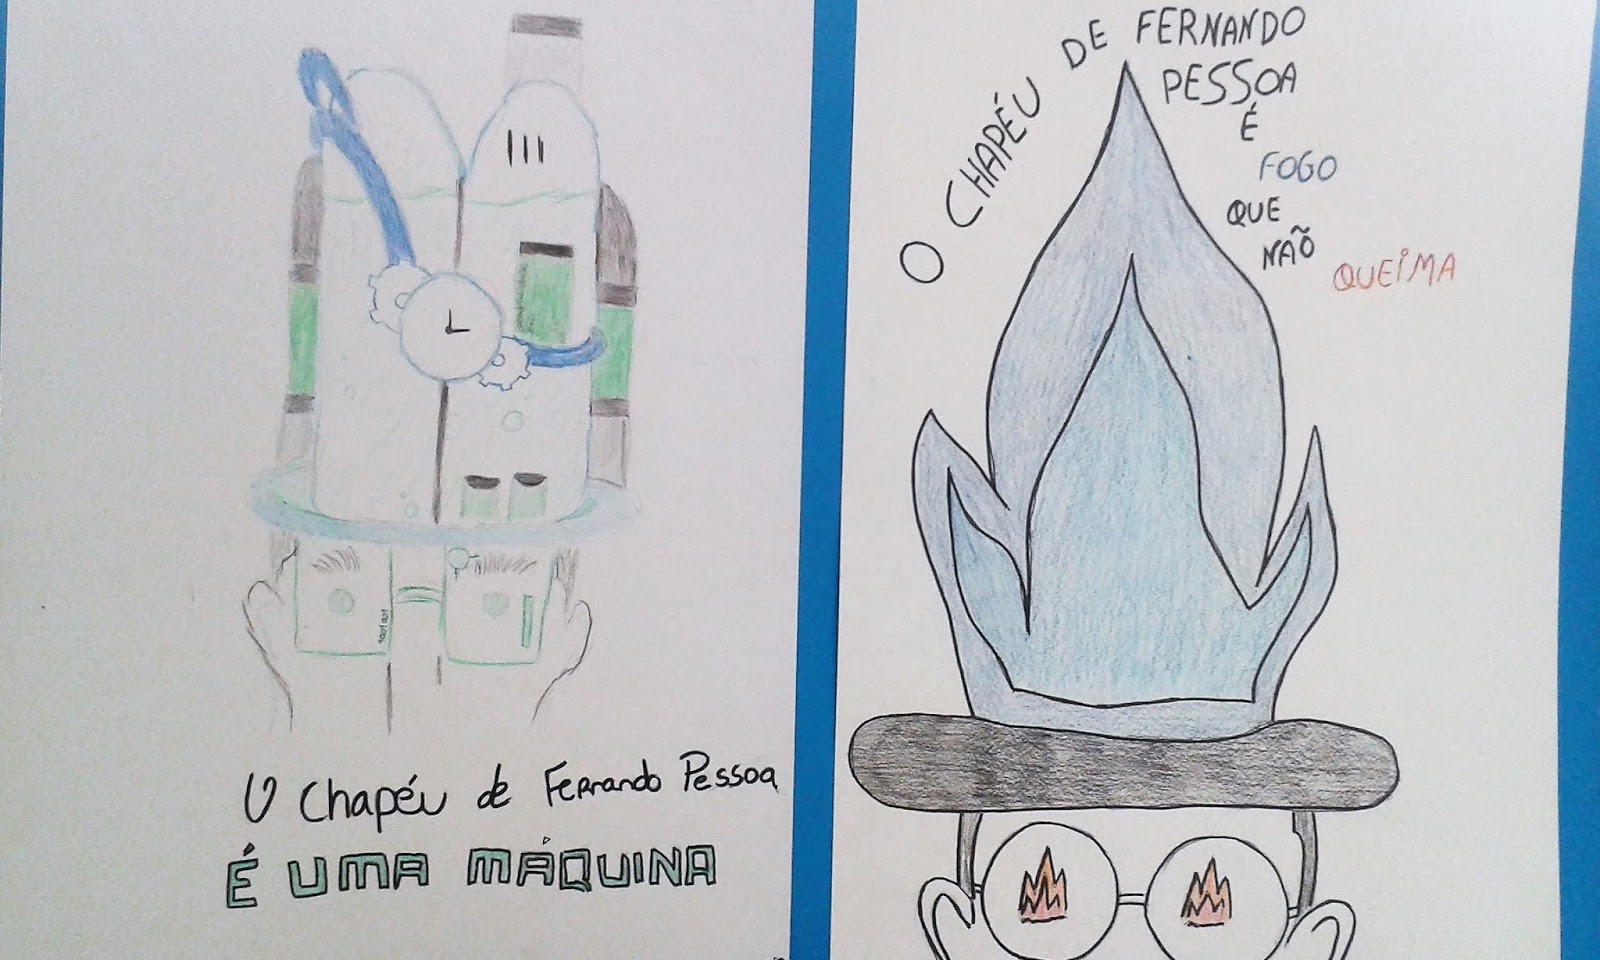 O Chapéu de Fernando Pessoa
É UMA MÁQUINA
O CHAPÉU DE FERNANDO
PESSOA
É
FOGO
QUE
NÃO
QUEIMA